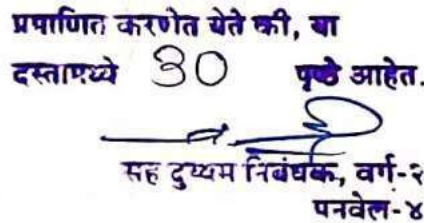 प्रमाणित करणेत येते की, या
दस्तामध्ये 30 पृष्ठे आहेत.
सह दुय्यम निबंधक, वर्ग-२
पनवेल-४